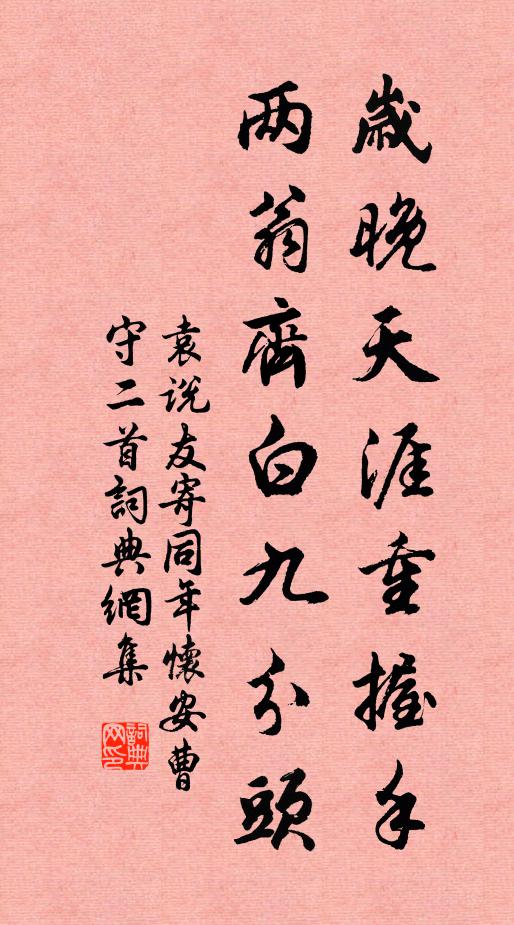 歲晚天涯重握手
两翁齊白九分頭
袁说友寄同年懷安曹
守二首詞典網集
詞典
网印